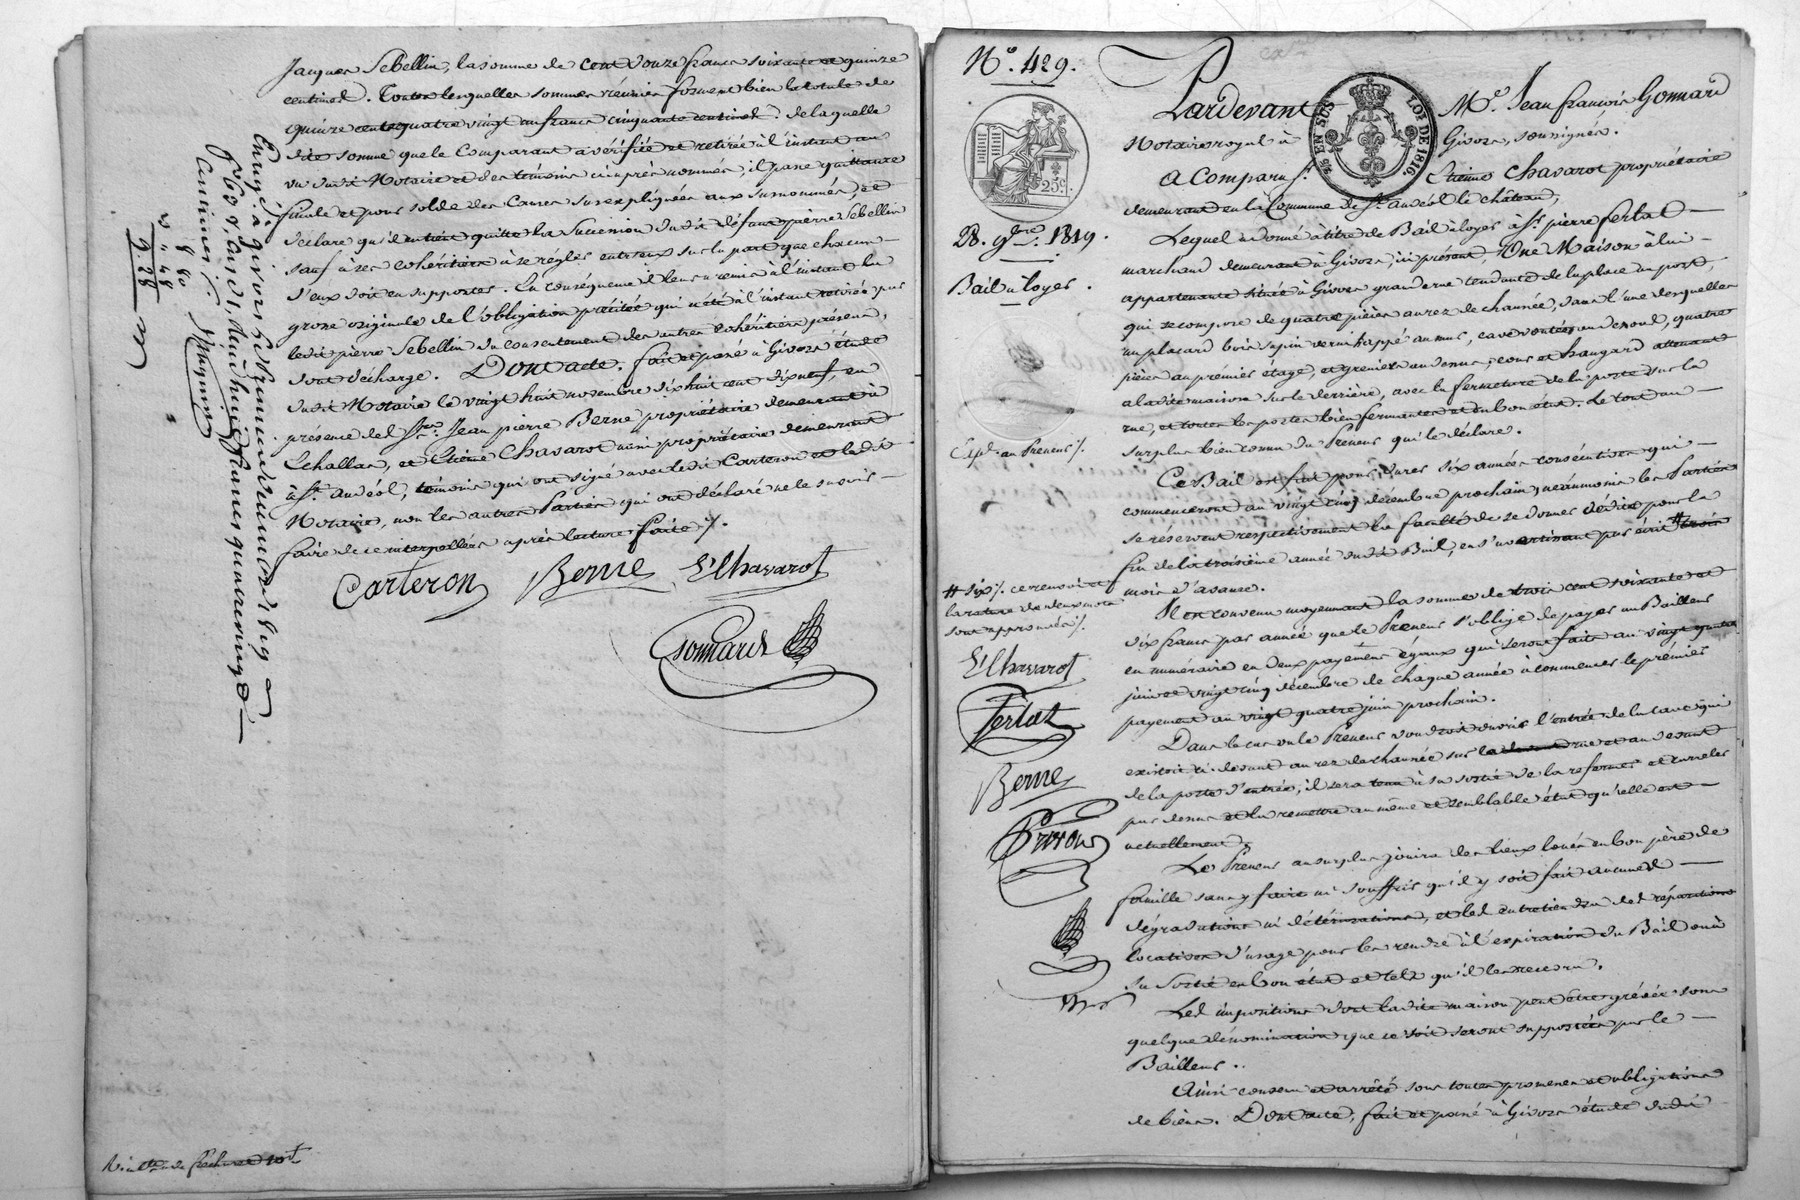 Jacques Sebellin, la somme de cent douze francs soixante et quinze
centimes. Toutes lesquelles sommes réunies forment bien la totale de
quinze cent quatre vingt un francs cinquante centimes. de laquelle
dite somme que le Comparant a vérifiée et retirée à l'instant au
vu dudit Notaire et des témoins ci après nommés, il passe quittance
finale et pour solde des Causes sus expliquées aux susnommés, et
déclare qu'il en tient quitte la Succession dudit défunt pierre Sebellin
sauf à ses cohéritiers à se regler entr'eux sur la part que chacun
d'eux doit en supporter. En conséquence il leur a remis à l'instant la
grosse originale de l'obligation précitée qui a été à l'instant retirée par
ledit pierre Sebellin du consentement des autres Cohéritiers présens,
dont décharge. Dont acte. fait et passé à Givors étude
dudit Notaire le vingt huit novembre dix huit cent dix neuf, en
présence des Srs. Jean pierre Berne propriétaire demeurant à
Echallas, et Etienne Chavarot aussi propriétaire demeurant
à St. Andéol, témoins qui ont signé avec ledit Carteron et ledit
Notaire, non les autres Parties qui ont déclaré ne le savoir
faire de ce interpellées après lecture faite ./.
Carteron Berne E Chavarot
Gonnard
Enreg.é à givors le premier
f.o 60 v.
centimes ./.
9. 28
No. 429.
25c.
28. 9bre. 1819.
Bail à loyer.
Exp.on au Preneur ./.
# six ./. ce renvoi et
la rature de deux mots
sont approuvés ./.
E Chavarot
Fertat
Berne
Pardevant Me. Jean françois Gonnard
25 EN SUS LOI DE 1816.
Notaire royal à Givors, soussigné.
A Comparu Sr. Etienne Chavarot propriétaire
demeurant en la Commune de St. andéol le château,
Lequel a donné à titre de Bail à loyer à Sr. pierre fertat
marchand demeurant à Givors, ici présent, Une Maison à lui
appartenante située à Givors grande rue tendante de la place au port,
qui se compose de quatre pièces au rez de chaussée, dans l'une desquelles
un placard bois sapin verni happé au mur, cave voutée au dessous, quatre
pièces au prémier étage, et greniers au dessus, cour et hangard attenant
à ladite maison sur le derrière, avec la fermeture de la porte sur la
rue, et toutes les portes bien fermantes et en bon état. Le tout au
surplus bien connu du Preneur qui le déclare.
Ce Bail est fait pour durer six années consécutives qui
commenceront au vingt cinq décembre prochain, néanmoins les Parties
se réservent respectivement la faculté de se donner dédite pour la
fin de la troisième année dudit Bail, en s'avertissant par écrit # trois
mois d'avance.
Il est convenu moyennant la somme de trois cent soixante et
dix francs par année que le Preneur s'oblige de payer au Bailleur
en numéraire en deux payemens égaux qui seront faits au vingt quatre
juin et vingt cinq décembre de chaque année à commencer le prémier
payement au vingt quatre juin prochain.
Dans le cas où le Preneur voudroit ouvrir l'entrée de la cave qui
existoit ci-devant au rez de chaussée sur la devant rue et au devant
de la porte d'entrée, il sera tenu à sa sortie de la refermer et carreler
par dessus et la remettre au même et semblable état qu'elle est
actuellement.
Le Preneur au surplus jouira des lieux loués en bon père de
famille sans y faire ni souffrir qu'il y soit fait aucunes
dégradations ni détériorations, et les entretiendra des réparations
locatives d'usage pour les rendre à l'expiration du Bail ou à
sa Sortie en bon état et tels qu'il les recevra.
Les impositions dont ladite maison peut être grévée sous
quelque dénomination que ce soit seront supportées par le
Bailleur.
Ainsi convenu et arrêté sous toutes promesses et obligations
de biens. Dont acte, fait et passé à Givors étude dudit